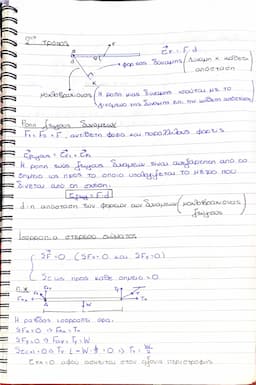 2ος τρόπος
Στ = F · d
φορέας δύναμης (Δύναμη × κάθετη
απόσταση)
μοχλοβραχίονας (Η ροπή μιας δύναμης ισούται με το
γινόμενο της δύναμης επί την κάθετη απόσταση)
Ροπή ζεύγους δυνάμεων
F₁ = F₂ = F, αντίθετη φορά και παράλληλους φορείς
Η ροπή ενός ζεύγους δυνάμεων είναι ανεξάρτητη από το
σημείο ως προς το οποίο υπολογίζεται το μέτρο που
δίνεται από τη σχέση:
= F · d
d: η απόσταση των φορέων των δυνάμεων (μοχλοβραχίονας
ζεύγους)
Ισορροπία στερεού σώματος
ΣF = 0 (ΣFx = 0 και ΣFy = 0)
Στ ως προς κάθε σημείο = 0
π.χ.
W
Η ράβδος ισορροπεί άρα:
ΣFx = 0 ⇒ FAx = Tx
ΣFy = 0 ⇒ FAy + Ty = W
Στ(A) = 0 ⇒ Ty · L - W · L/2 = 0 ⇒ Ty = W/2
= 0 αφού ασκείται στον άξονα περιστροφής